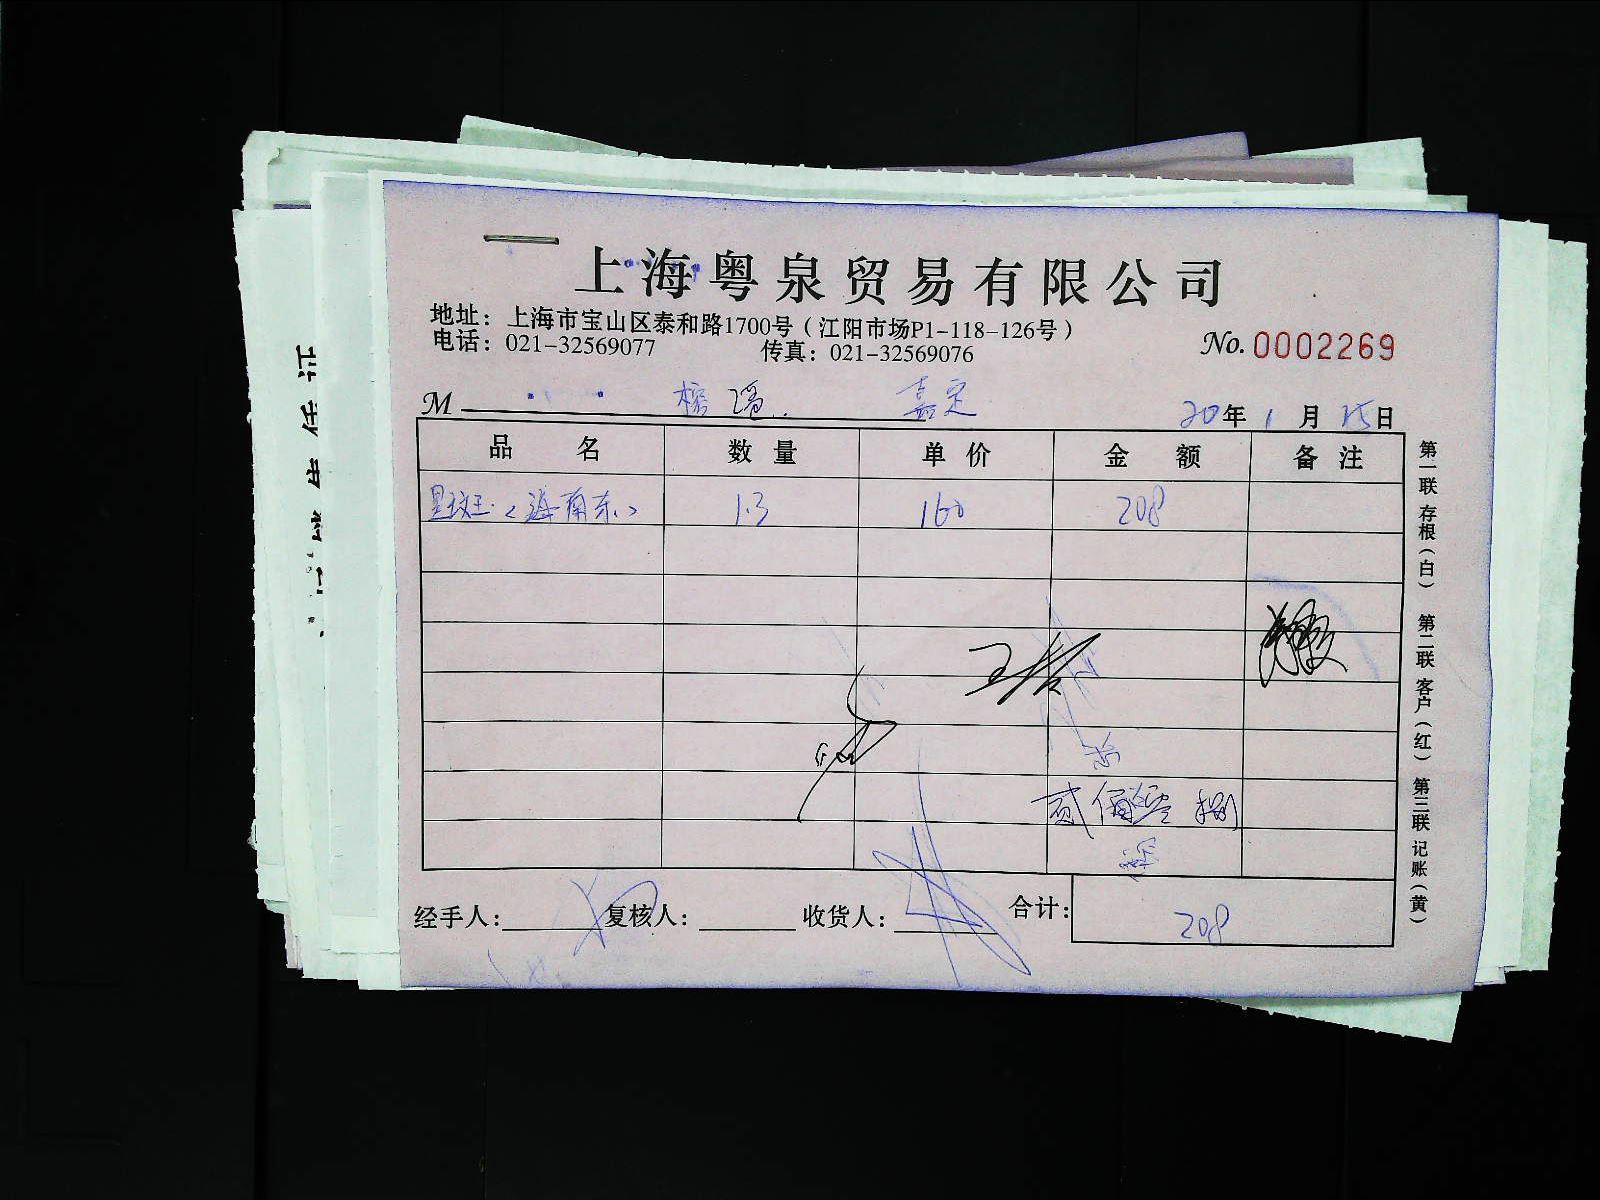 上海粤泉贸易有限公司
地址：上海市宝山区泰和路1700号（江阳市场P1-118-126号）
电话：021-32569077 传真：021-32569076
No. 0002269
M 嘉定
20年1月25日
品名 数量 单价 金额 备注
星斑〈海南东〉 1.3 160 208
贰佰零捌
经手人： 复核人： 收货人： 合计： 208
第一联 存根（白） 第二联 客户（红） 第三联 记账（黄）